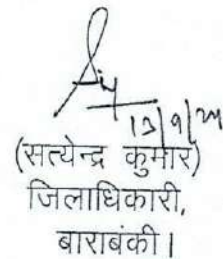 13/9/24
(सत्येन्द्र कुमार)
जिलाधिकारी,
बाराबंकी।